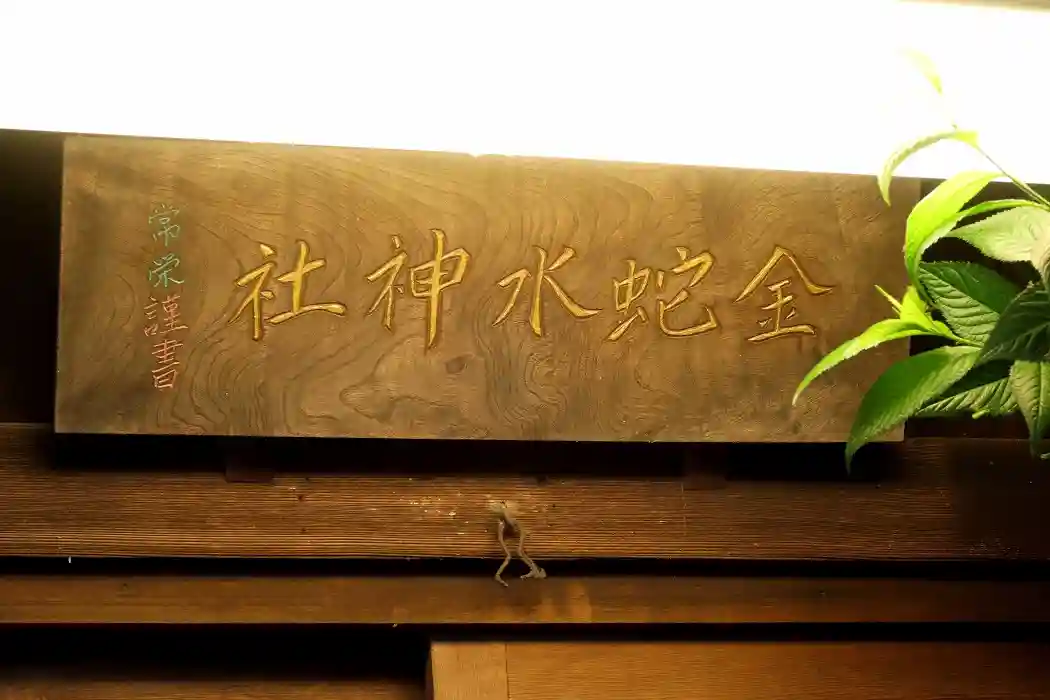 金蛇水神社
常栄謹書